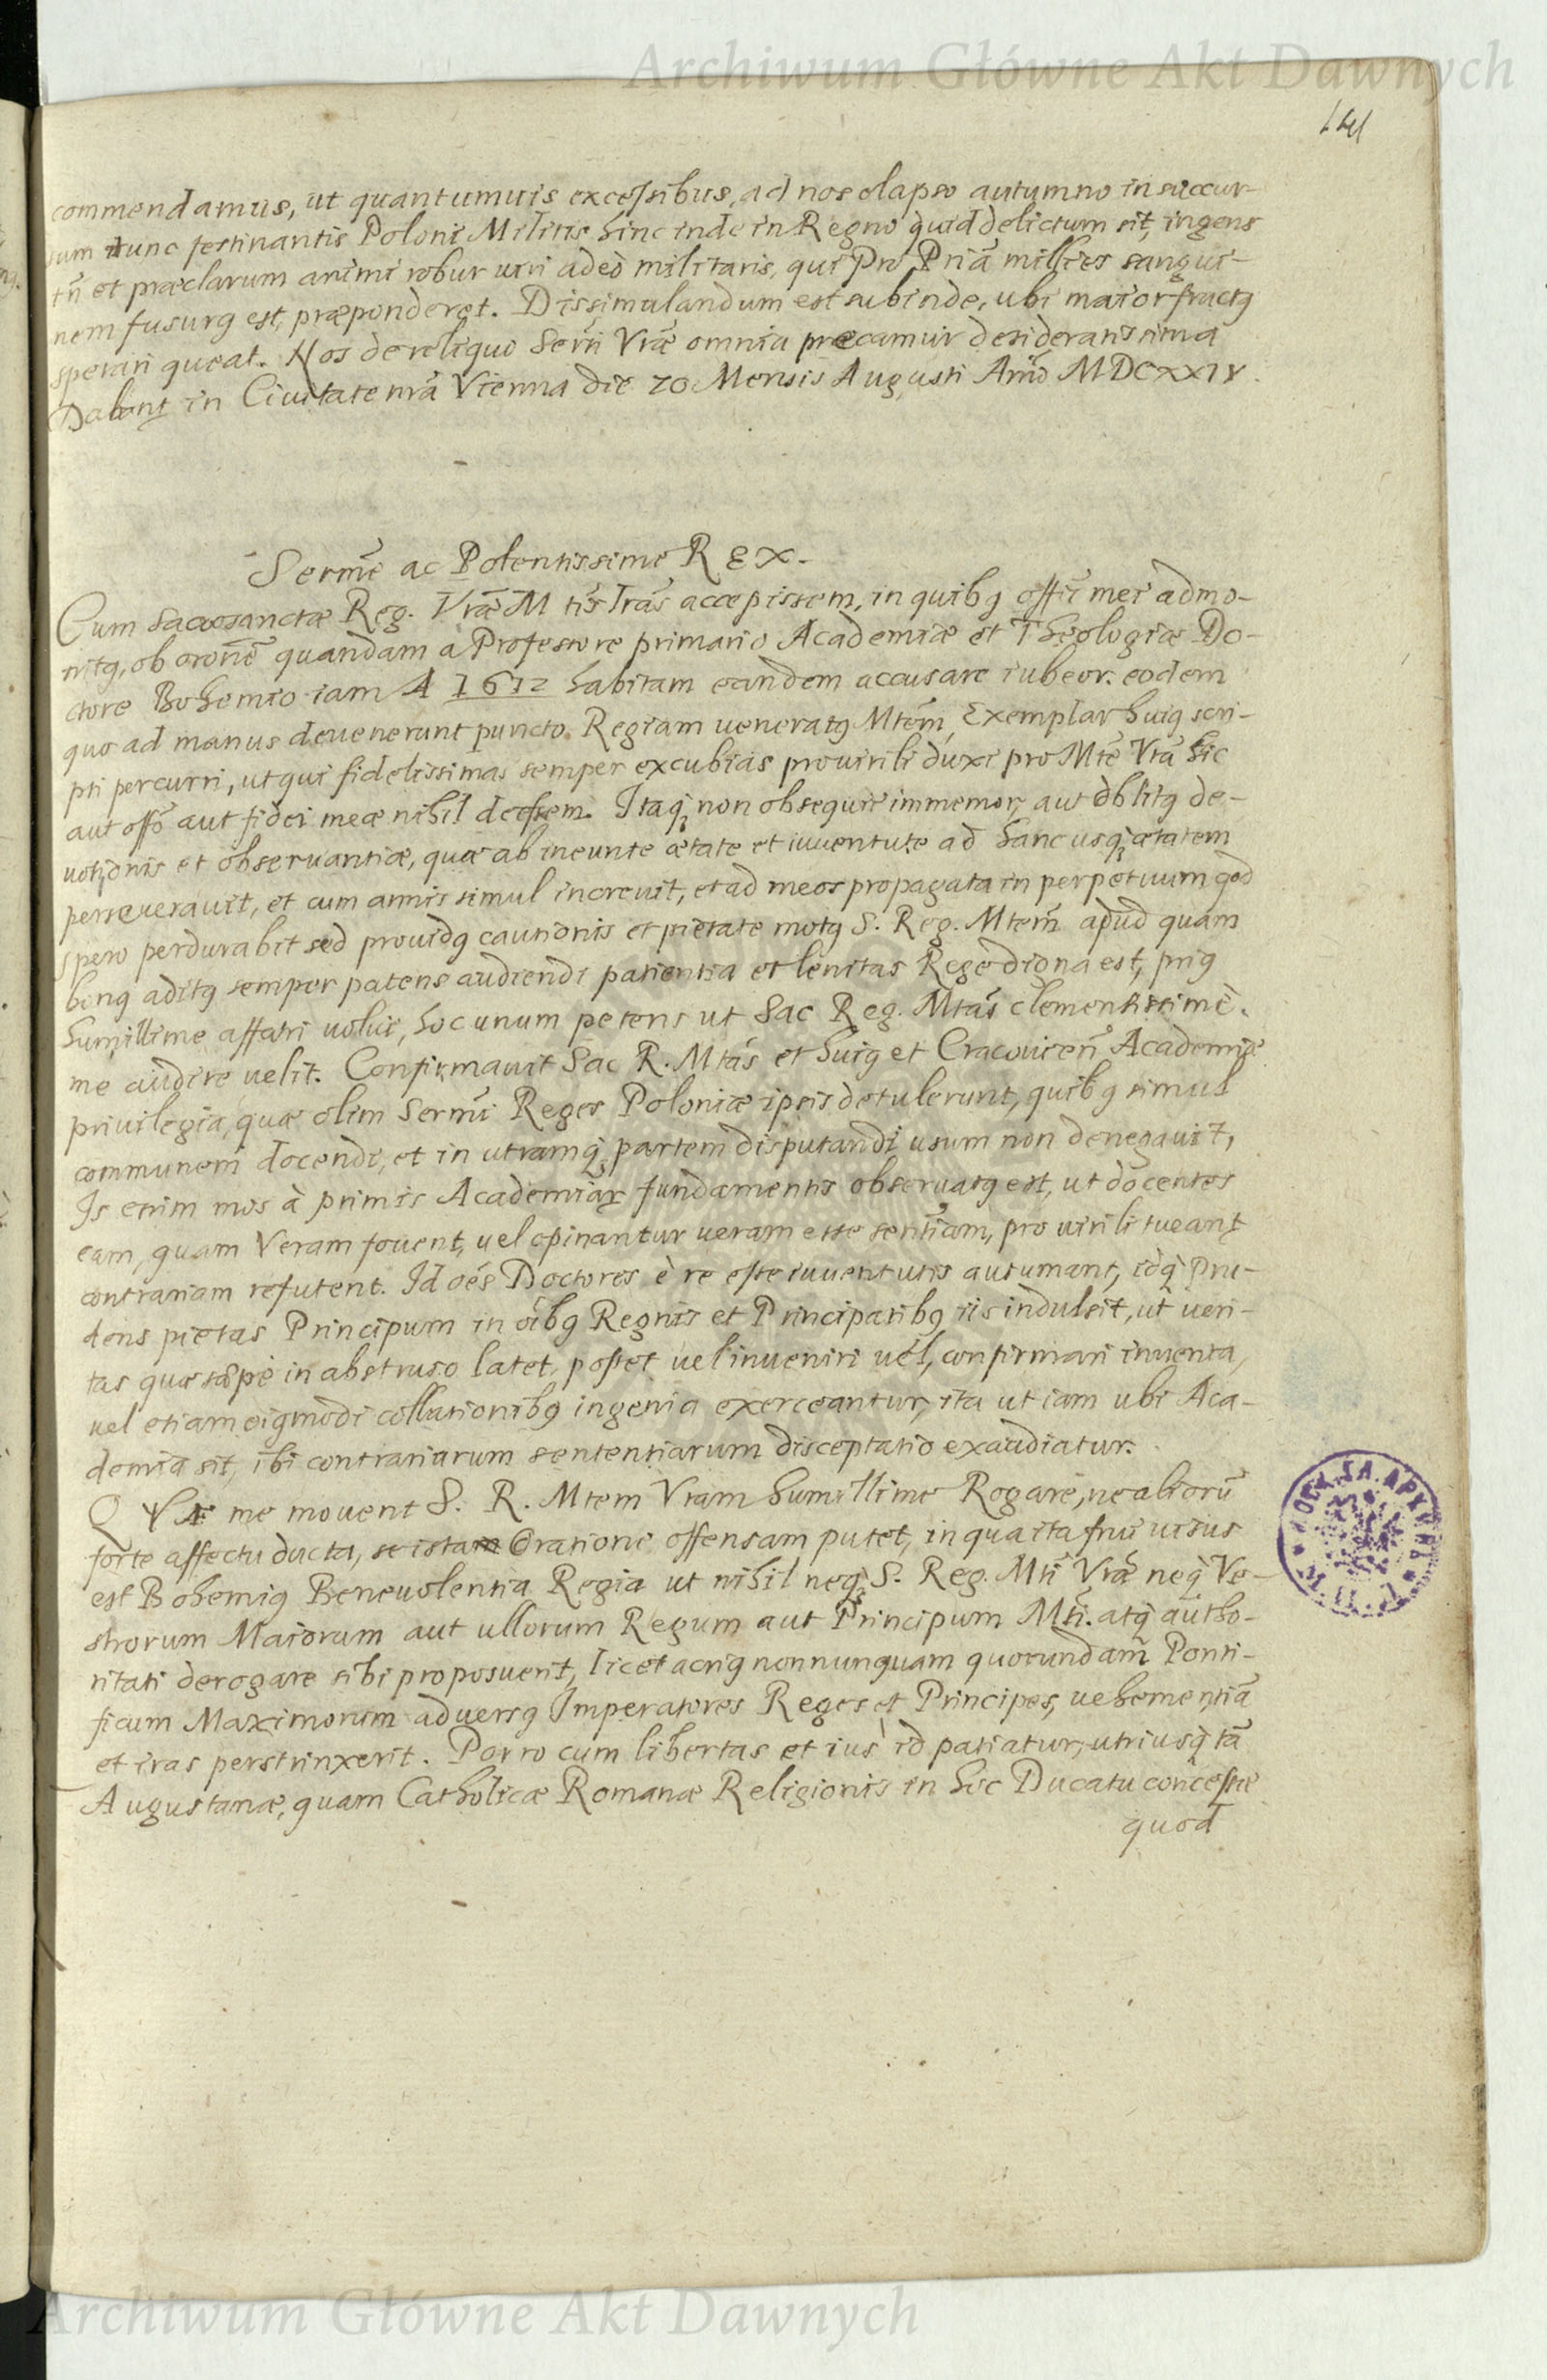 Archiwum Główne Akt Dawnych
141
commendamus, ut quantumuis excessibus, ad nos elapso autumno in succur-
sum tunc festinantis Poloni Militis hinc inde in Regno quid delictum sit, ingens
tñ et præclarum animi robur uiri adeò militaris, qui Pro Priã millies sangui-
nem fusurꝯ est, præponderet. Dissimulandum est subinde, ubi maior fructꝯ
sperari queat. Nos de reliquo Serti Vræ omnia precamur desideratissima
Dabant in Ciuitate nrã Vienna die 20 Mensis Augusti Anno MDCXXIV.
Sermẽ ac Potentissime REX.
Cum sacrosanctæ Reg. Vræ Mtis lrãs accepissem, in quibꝯ officÿ mei admo-
nitꝯ, ob oronẽ quandam a Professore primario Academiæ et Theologiæ Do-
ctore Bohemio iam A 1612 habitam eandem accusare iubeor. eodem
quo ad manus deuenerunt puncto. Regiam ueneratꝯ Mtem, Exemplar huiꝯ scri-
pti percurri, ut qui fidelissimas semper excubias pro uirili duxi pro Mte Vrã hic
aut offo aut fidei meæ nihil deessem. Itaq non obsequii immemor, aut oblitꝯ de-
uotionis et obseruantiæ, quæ ab ineunte ætate et iuuentute ad hanc usq ætatem
perseuerauit, et cum annis simul increuit, et ad meos propagata in perpetuum qod
spero perdurabit sed prouidꝯ cautionis et pietate motꝯ S. Reg. Mtem apud quam
bonꝯ aditꝯ semper patens audiendi patientia et lenitas Rege digna est, priꝯ
humillime affari uolui, hoc unum petens ut Sac Reg. Mtas clementissimè
me audire uelit. Confirmauit Sac R. Mtas et huiꝯ et Cracouien Academiæ
priuilegia, quæ olim Sermi Reges Poloniæ ipsis detulerunt, quibꝯ simul
communem docendi, et in utramq partem disputandi usum non denegauit,
Is enim mos à primis Academiar fundamentis obseruatꝯ est, ut docentes
eam, quam Veram fouent, uel opinantur ueram esse sentiam, pro uirili tueant
contrariam refutent. Id oẽs Doctores è re esse iuuentutis autumant, idq Pru-
dens pietas Principum in oĩbꝯ Regnis et Principatibꝯ iis indulsit, ut ueri-
tas quæ sæpè in abstruso latet, posset uel inueniri uel, confirmari inuenta,
uel etiam eiꝯmodi collationibꝯ ingenia exerceantur, ita ut iam ubi Aca-
demia sit, ibi contrariarum sententiarum disceptatio exaudiatur.
QVÆ me mouent S. R. Mtem Vram humillime Rogare, ne aliorũ
forte affectu ducta, se ista Oratione offensam putet, in qua ita frui uisus
est Bohemiꝯ Beneuolentia Regia ut nihil neq S. Reg. Mti Vræ neq Ve-
strorum Maiorum aut ullorum Regum aut Principum Mti. atq autho-
ritati derogare sibi proposuerit, licet acriꝯ nonnunquam quorundam Ponti-
ficum Maximorum aduersꝯ Imperatores Reges et Principes, uehementiã
et iras perstrinxerit. Porro cum libertas et ius id patiatur, utriusq tã
Augustanæ, quam Catholicæ Romanæ Religionis in hoc Ducatu concessæ
quod
Archiwum Główne Akt Dawnych